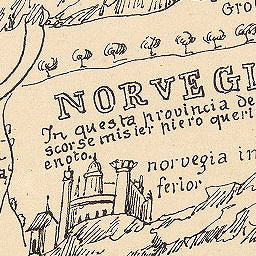 Gro
NORVEGI
In questa provincia de
scorse misier piero queri
enoto.
norvegia in
ferior